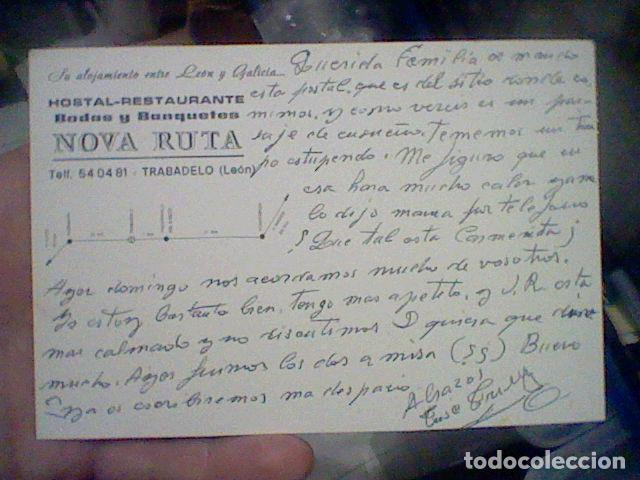 Su alojamiento entre León y Galicia...
HOSTAL-RESTAURANTE
Bodas y Banquetes
NOVA RUTA
Telf. 54 04 81 - TRABADELO (León)
Querida Familia os mando
esta postal, que es del sitio donde co
mimos, y como vereis es un pai-
saje de ensueño. Tenemos un tiem
po estupendo. Me figuro que en
esa hara mucho calor ya me
lo dijo mama por telefono
¿Que tal esta Carmenita?
Ayer domingo nos acordamos mucho de vosotros.
Yo estoy bastante bien, tengo mas apetito, y J.R. esta
mas calmado y no discutimos D quiera que dure
mucho. Ayer fuimos los dos a misa (§§) Bueno
ya os escribiremos mas despacio
Abrazos
todocoleccion.net